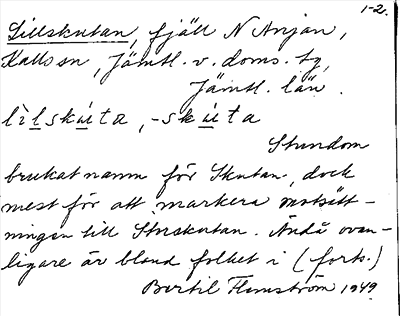 1-2.
Lillskutan, fjäll N Anjan,
Kall sn, Jämtl. v. doms. tg,
Jämtl. län.
lìlskúta, -skúta
Stundom
brukat namn för Skutan, dock
mest för att markera motsätt-
ningen till Storskutan. Ändå ovan-
ligare är bland folket i (forts.)
Bertil Flemström 1949